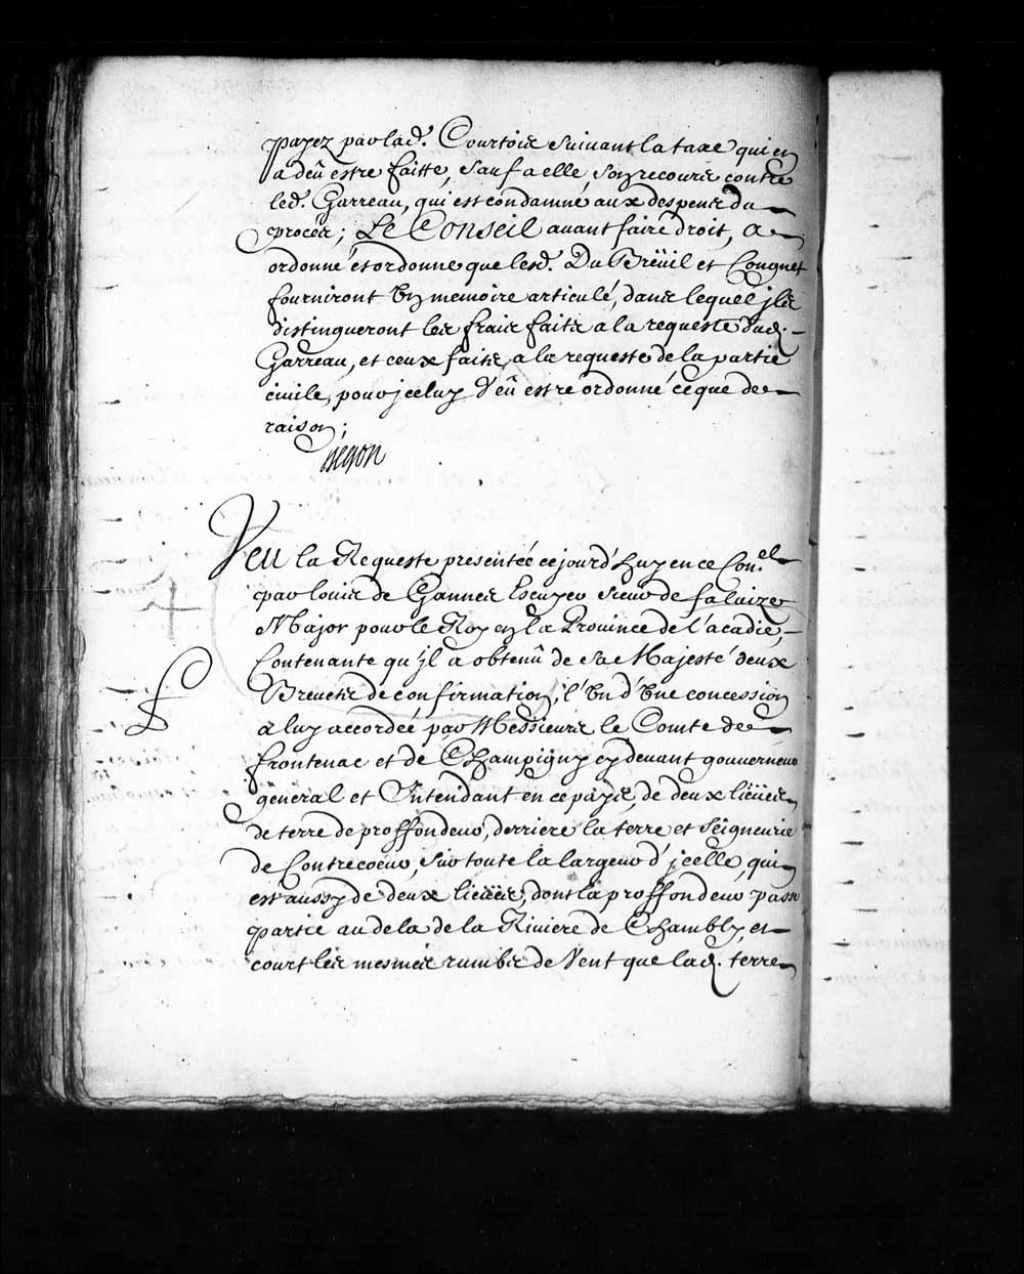 payez par lad. Courtois suivant la taxe qui en
a deû estre faitte, sauf a elle, son recours contre
led. Garreau, qui est condamné aux despens du
procés; Le Conseil auant faire droit, a
ordonné et ordonne que lesd. Du Breüil et Congnet
fourniront Un memoire articulé, dans lequel jls
distingueront les frais faits a la requeste dud.
Garreau, et ceux faits, a la requeste de la partie
ciuile, pour jceluy Veû estre ordonné ce que de
raison;
Begon
Veu la Requeste presentée cejourd'huy en ce Con.el
par louis de Gannes Escuyer Sieur de falaize
Major pour le Roy en la Prouince de l'acadie,
Contenante qu'jl a obtenû de Sa Majesté deux
Breuets de confirmation, l'Un d'Une concession
a luy accordée par Messieurs le Comte de
frontenac et de Champigny cy deuant gouuerneur
general et Intendant en ce pays, de deux lieües
de terre de proffondeur, derriere la terre et Seigneurie
de Contrecoeur, sur toute la largeur d'jcelle, qui
est aussy de deux lieües, dont la proffondeur passe
partie au dela de la Riuiere de Chambly, et
court les mesmes rumbs de Vent que lad. terre